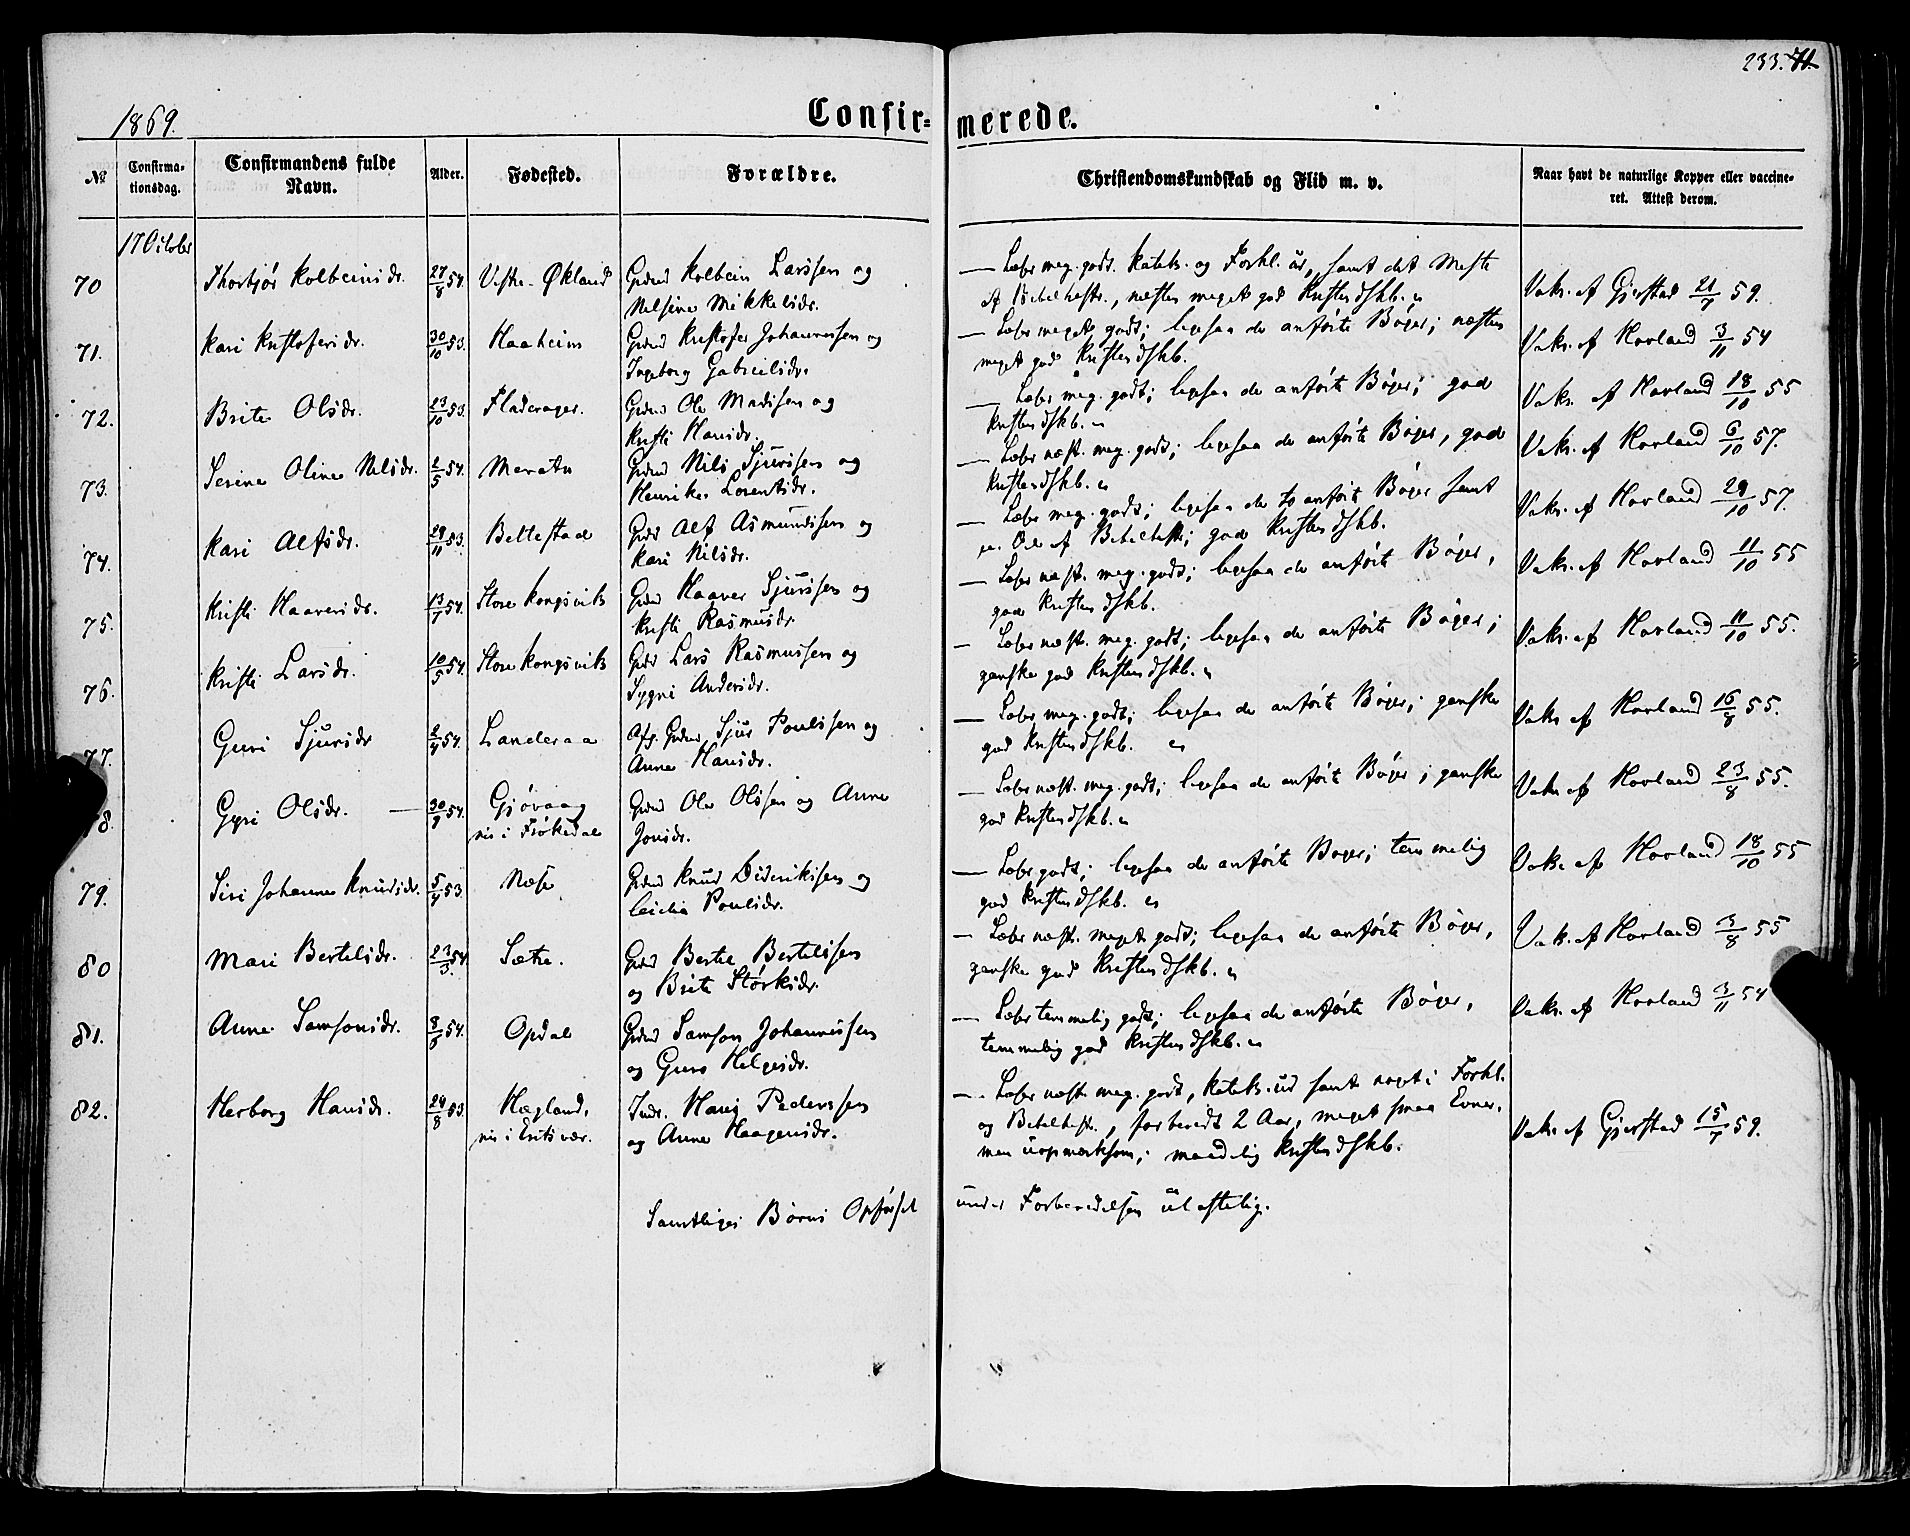 233. 71.
1869.
Confir- merede.
№
Confirma-
tionsdag.
Confirmandens fulde
Navn.
Alder.
Fødested.
Forældre.
Christendomskundskab og Flid m. v.
Naar havt de naturlige Kopper eller vaccine-
ret. Attest derom.
17 Octobr
70 Kolbeinsdr. 27/8 54. Økland Kolbein Larssen og
Nelsine Mikkelsdr.
— Læser meg. godt. Kateks. og Forkl. ud, samt det Meste
af Bibelhistr., næsten meget god Kristendskb.
Vaks. af Gjerstad 21/7 59.
71. Kari Kristofersdr. 30/10 53. Haaheim Kristofer Johannessen og
Ingeborg Gabrielsdr.
— Læser meget godt; ligesaa de anførte Bøger; næsten
meget god Kristendskb.
Vaks. af Hovland 3/11 54
72. Brite Olsdr. 23/10 53. Fladerager. Ole Madssen og
Kristi Hansdr.
— Læser meg. godt; ligesaa de anførte Bøger; god
Kristendskb.
Vaks. af Hovland 18/10 55
73. Serine Oline Nilsdr. 2/5 54. Nils Sjurssen og
Henrike Lorentsdr.
— Læser næst. meg. godt; ligesaa de anførte Bøger, god
Kristendskb.
Vaks. af Hovland 6/10 57.
74. Kari Alfsdr. 29/11 53. Bettestad Alf Asmundssen og
Kari Nilsdr.
— Læser meg. godt; ligesaa de to anførte Bøger samt
en Del af Bibelhistr; god Kristendskb.
Vaks. af Hovland 29/10 57.
75. Kristi Haaversdr. 13/7 54. Store Kongsvik Haaver Sjurssen og
Kristi Rasmusdr.
— Læser næst. meg. godt; ligesaa de anførte Bøger,
god Kristendskb.
Vaks. af Hovland 11/10 55
76. Kristi Larsdr. 10/5 54. Store Kongsvik Lars Rasmussen og
Sygni Andersdr.
— Læser næst. meg. godt; ligesaa de anførte Bøger;
ganske god Kristendskb.
Vaks. af Hovland 11/10 55.
77. Guri Sjursdr 2/4 54. Landeraa Afg. Sjur Poulssen og
Anne Hansdr.
— Læser meg. godt; ligesaa de anførte Bøger; ganske
god Kristendskb.
Vaks af Hovland 16/8 55.
8. Gyri Olsdr. — 30/9 54. Gjøvaag
Ole Olssen og Anne
Jonsdr.
— Læser næst. meg. godt; ligesaa de anførte Bøger; ganske
god Kristendskb.
Vaks af Hovland 23/8 55.
79. Siri Johanne Knudsdr. 5/4 53. Næse Knud Dideriksen og
Poulsdr.
— Læser godt; ligesaa de anførte Bøger; temmelig
god Kristendskb.
Vaks. af Hovland 18/10 55
80 Mari Bertelsdr. 23/3 54 Sætre. Bertelssen
og Brite Størksdr.
— Læser næst. meget godt; ligesaa de anførte Bøger,
ganske god Kristendskb.
Vaks. af Hovland 3/8 55
81. Anne Samsonsdr. 8/8 54. Opdal Samson Johannessen
og Guro Helgesdr.
— Læser temmelig godt; ligesaa de anførte Bøger,
temmelig god Kristendskb.
Vaks. af Hovland 3/11 54
82. Herborg Hansdr. 29/8 53 Hægland,
Indr. Hans Pederssen
og Anne Haagensdr.
— Læser næst. meg. godt, Kateks. ud samt noget i Forkl.
og Bibelhistr., forberedt 2 Aar, meget smaa Evner,
men uopmærksom; maadelig Kristendskb.
Vaks af Gjerstad 15/7 59.
Samtliges Børns Opførsel under Forberedelsen ulastelig.